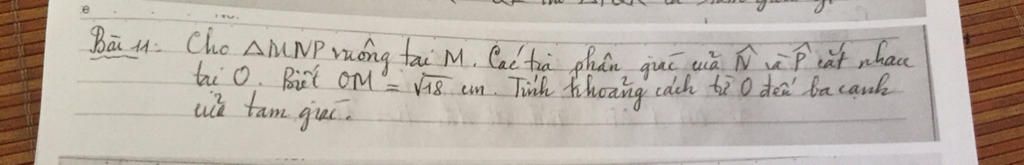 Bài 11: Cho ΔMNP vuông tại M. Các tia phân giác của N̂ và P̂ cắt nhau
tại O. Biết OM = √18 cm. Tính khoảng cách từ O đến ba cạnh
của tam giác.